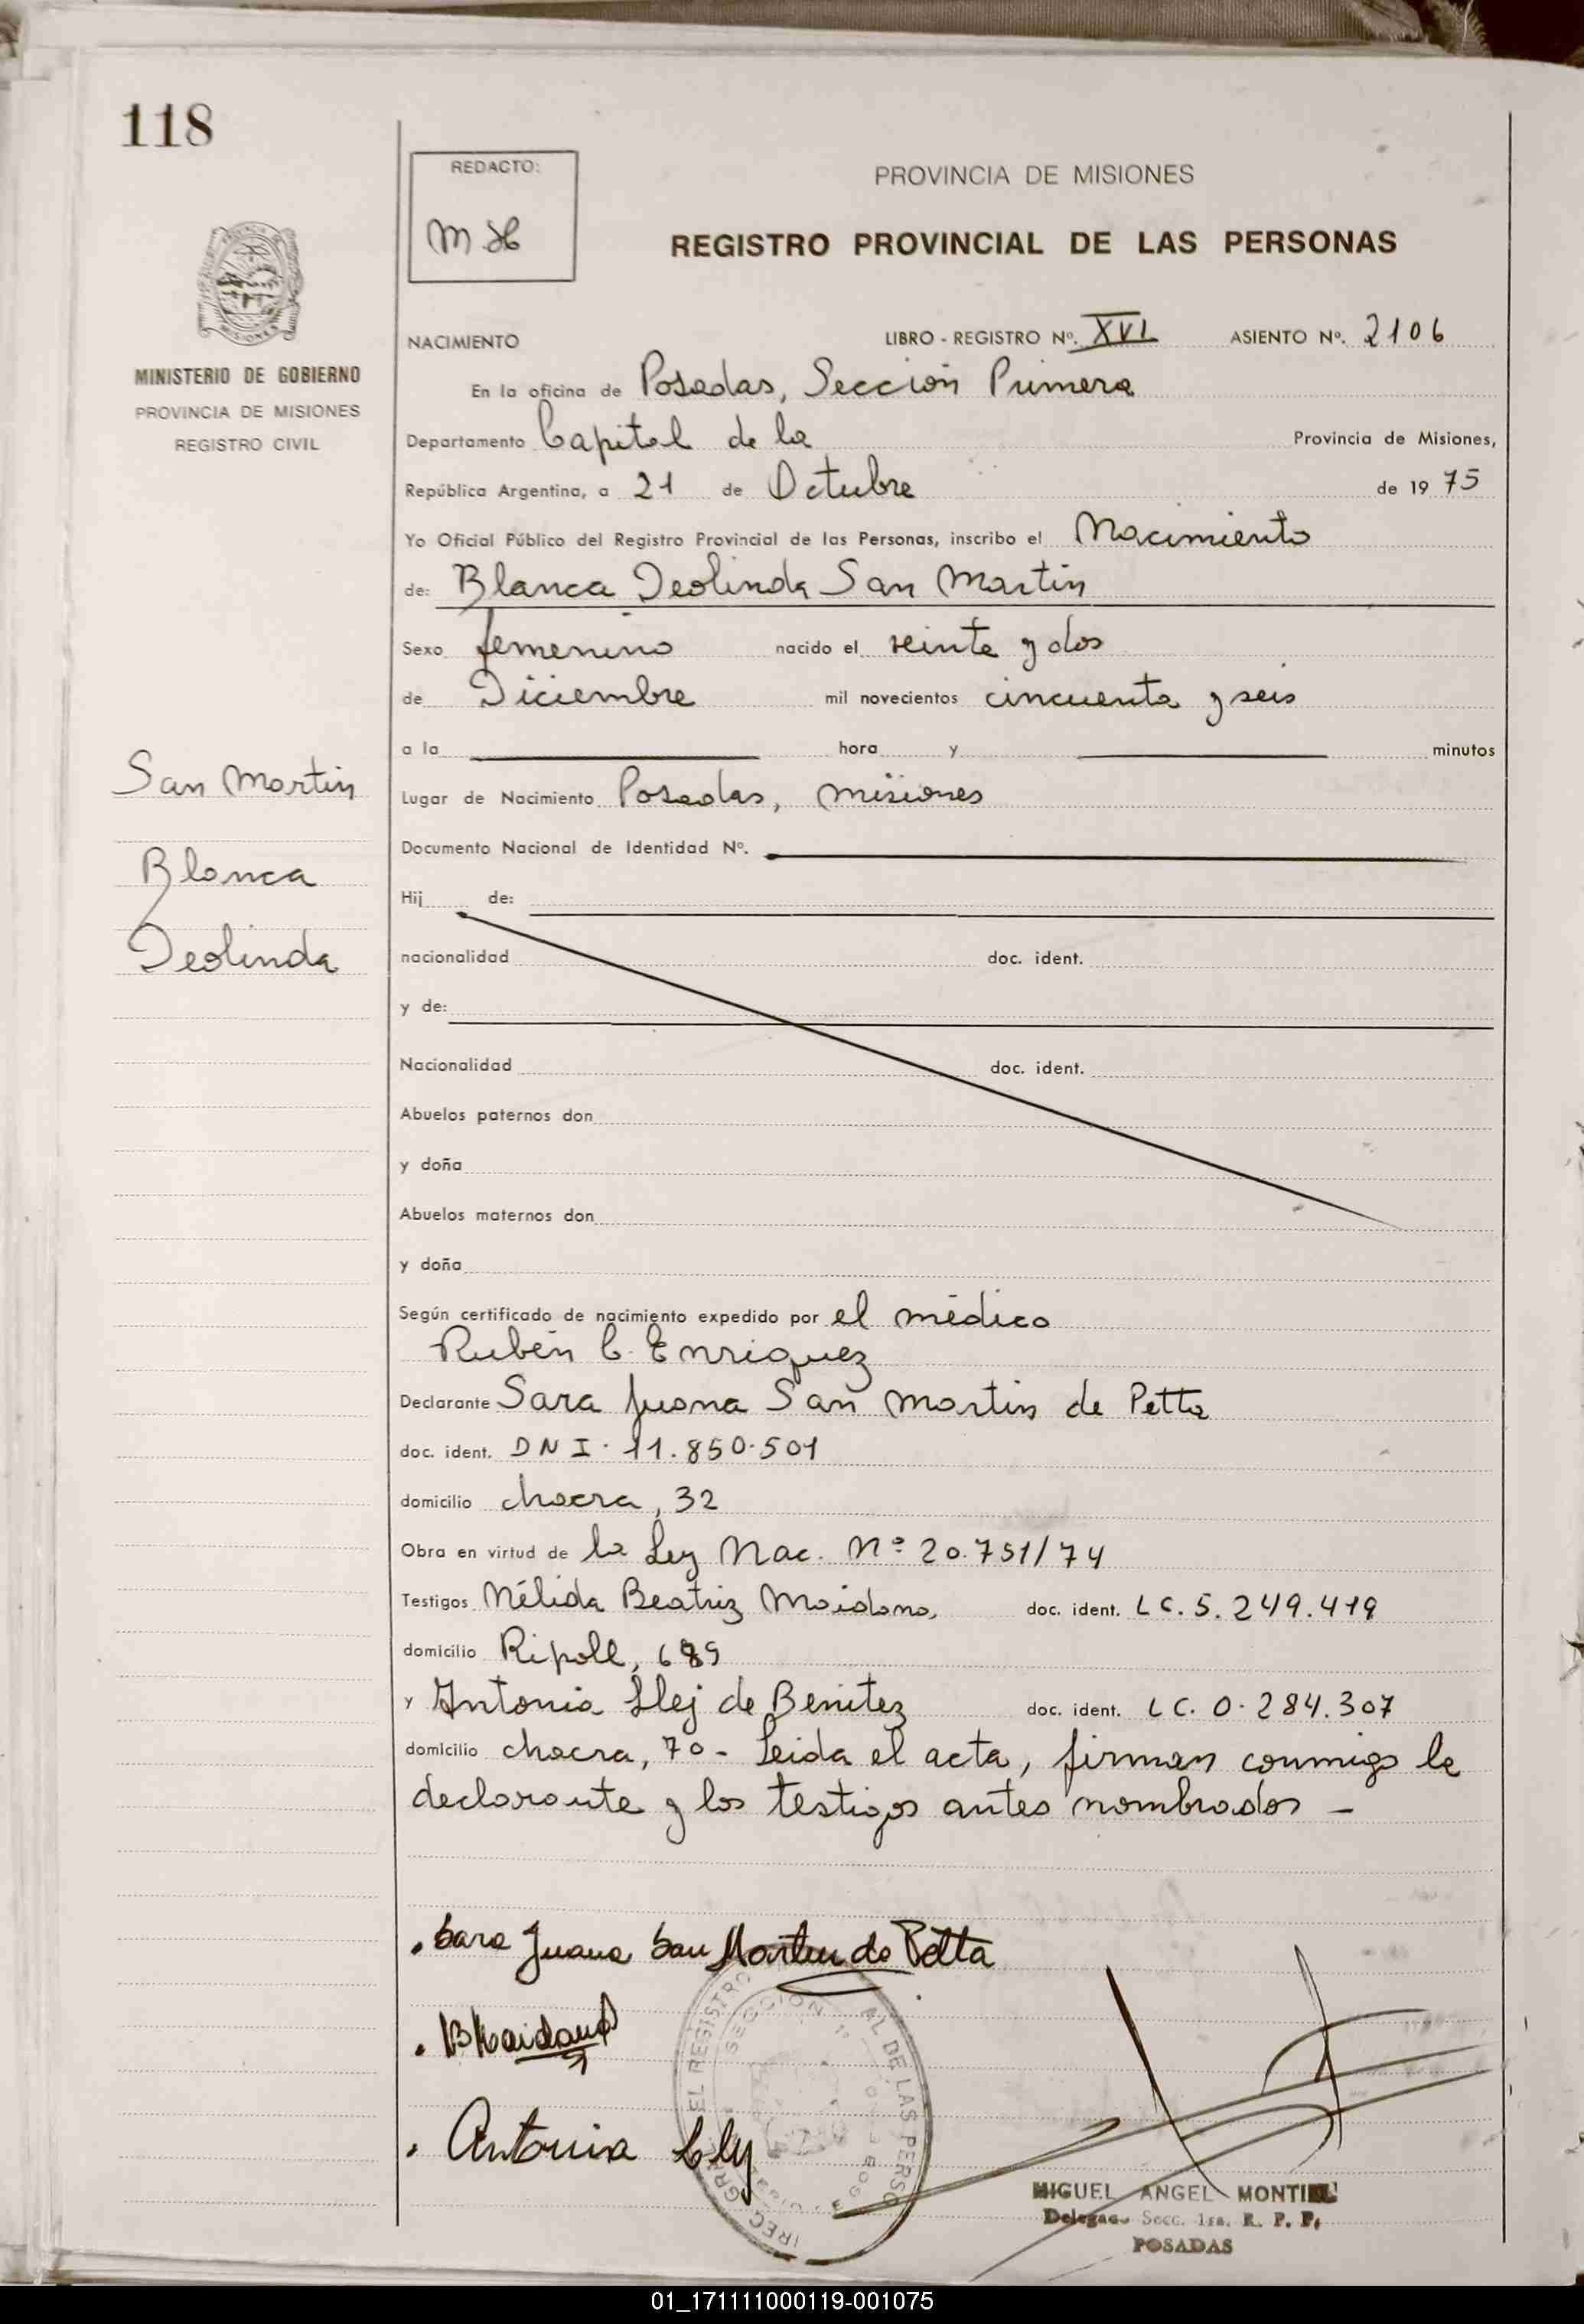 118
REDACTO:
M H
PROVINCIA DE MISIONES
REGISTRO PROVINCIAL DE LAS PERSONAS
MISIONES
MINISTERIO DE GOBIERNO
PROVINCIA DE MISIONES
REGISTRO CIVIL
NACIMIENTO LIBRO - REGISTRO Nº. XVI ASIENTO Nº. 2106
En la oficina de Posadas, Sección Primera
Departamento Capital de la Provincia de Misiones,
República Argentina, a 21 de Octubre de 1975
Yo Oficial Público del Registro Provincial de las Personas, inscribo el Nacimiento
de: Blanca Deolinda San Martín
Sexo femenino nacido el veinte y dos
de Diciembre mil novecientos cincuenta y seis
a la hora y minutos
San Martín
Blanca
Deolinda
Lugar de Nacimiento Posadas, Misiones
Documento Nacional de Identidad Nº.
Hij de:
nacionalidad doc. ident.
y de:
Nacionalidad doc. ident.
Abuelos paternos don
y doña
Abuelos maternos don
y doña
Según certificado de nacimiento expedido por el médico
Rubén C. Enriquez
Declarante Sara Juana San Martín de Petta
doc. ident. DNI. 11.850.501
domicilio chacra, 32
Obra en virtud de la Ley Nac. Nº 20.751/74
Testigos Nélida Beatriz Maidana, doc. ident. LC. 5.249.419
domicilio Ripoll, 689
y Antonia Lley de Benitez doc. ident. LC. 0.284.307
domicilio chacra, 70 - Leida el acta, firman conmigo la
declarante y los testigos antes nombrados -
Sara Juana San Martin de Petta
BMaidana
Antonia Lley
MIGUEL ANGEL MONTIEL
Delegado Secc. 1ra. R. P. P.
POSADAS
01_171111000119-001075